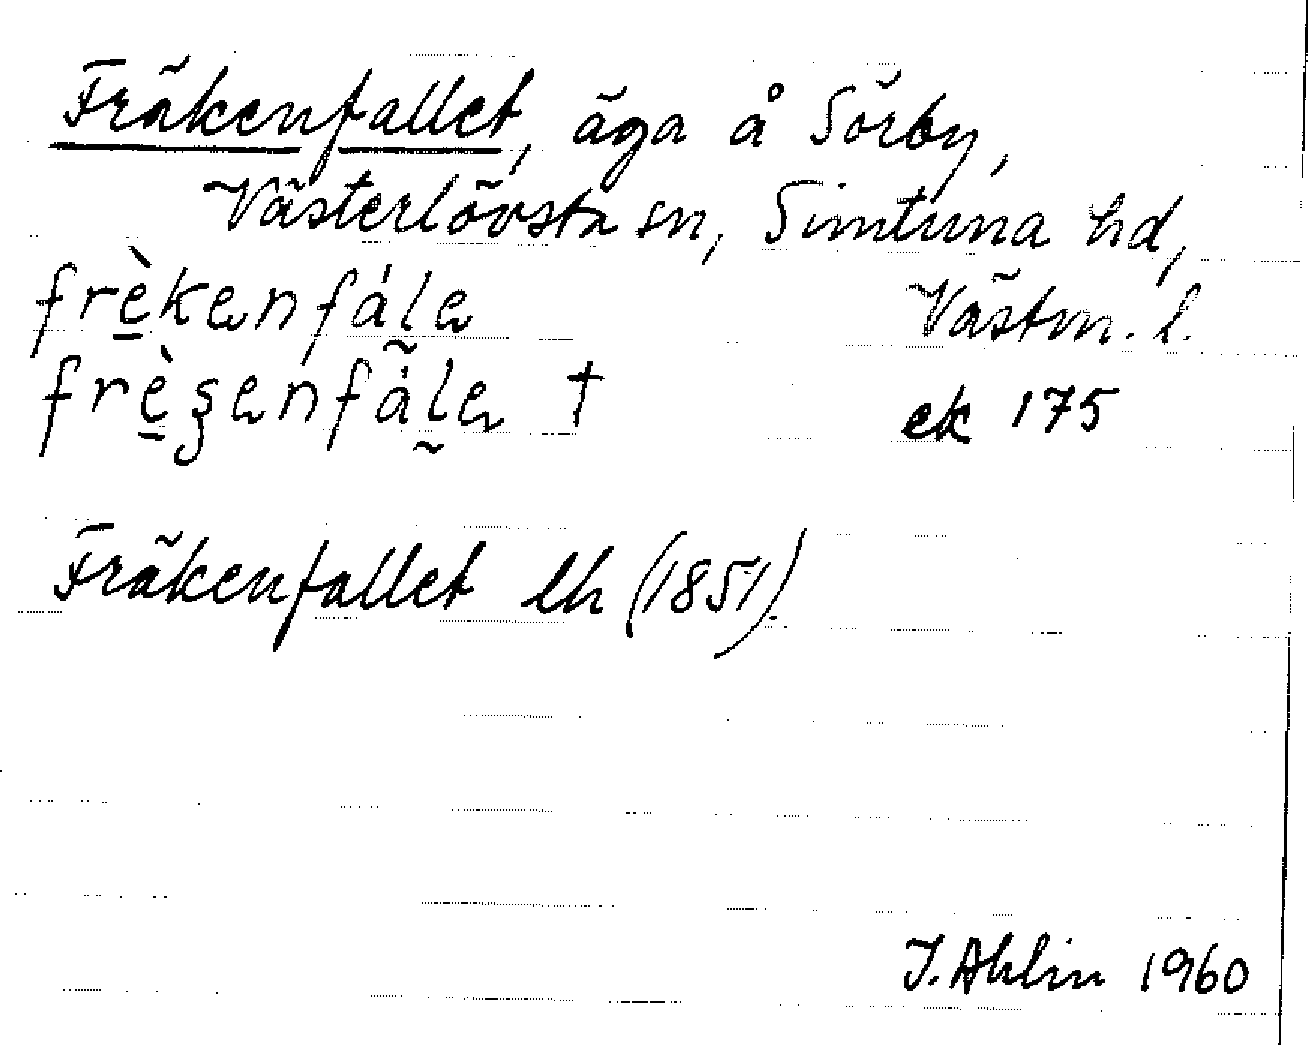 Fräkenfallet, äga å Sörby,
Västerlövsta sn, Simtuna hd,
frè̱kenfál̰e Västm. l.
frè̱şenfȧ̀l̰e † ek 175
Fräkenfallet lh (1851).
I. Ahlin 1960